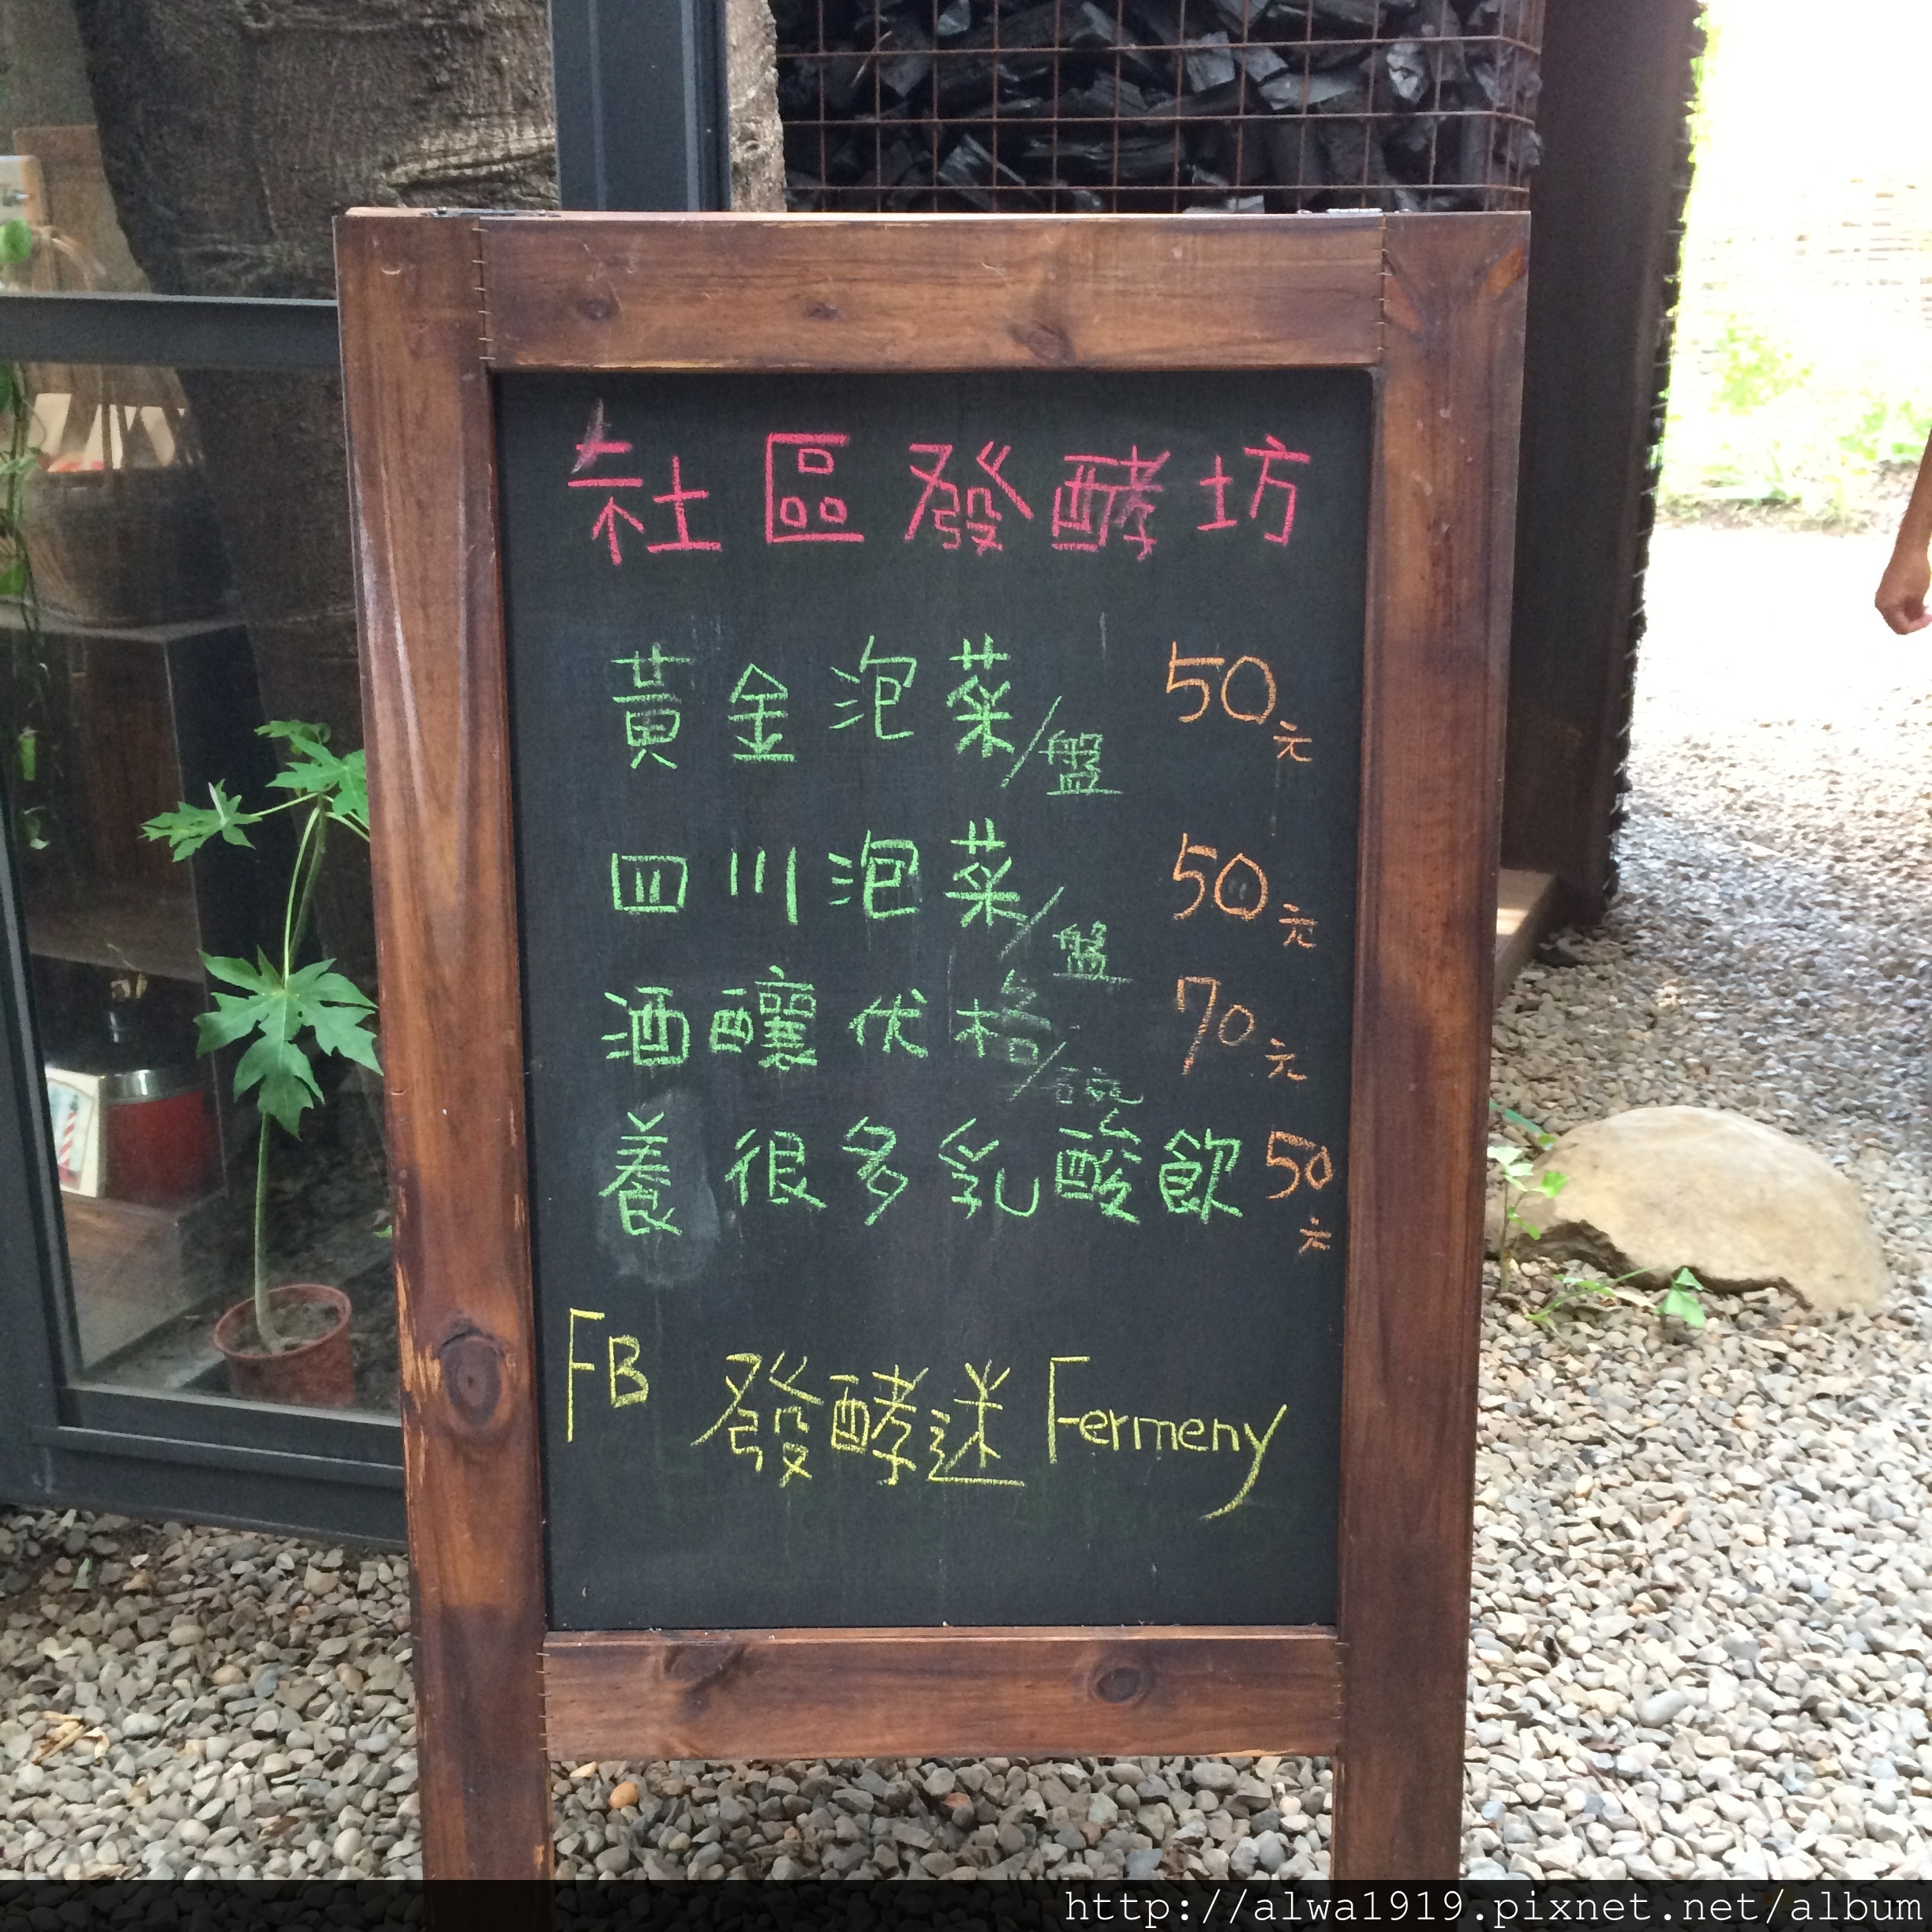 社區發酵坊
黃金泡菜/盤 50元
四川泡菜/盤 50元
酒釀伏格/碗 70元
養很多乳酸飲 50元
FB 發酵迷 Fermeny
http://alwa1919.pixnet.net/album